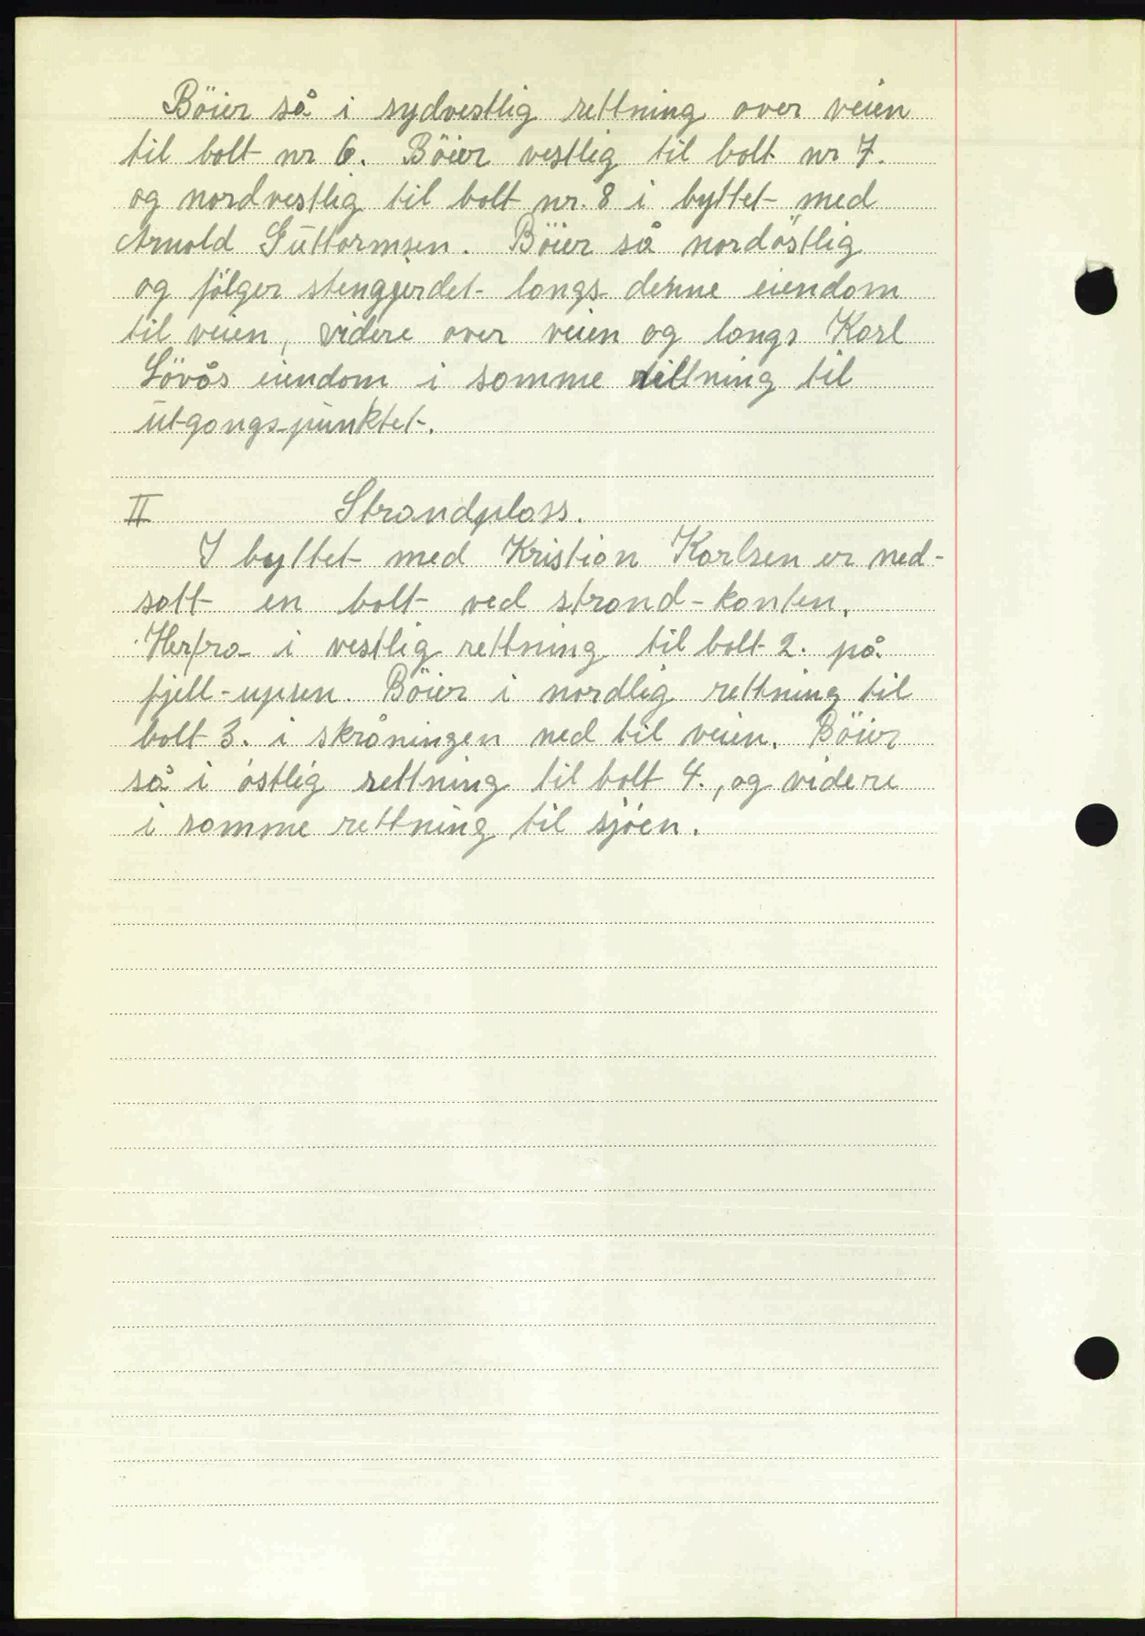 Böier så i sydvestlig rettning over veien
til bolt nr 6. Böier vestlig til bolt nr 7.
og nordvestlig til bolt nr. 8 i byttet med
Arnold Guttormsen. Böier så nordöstlig
og fölger stengjerdet langs denne eiendom
til veien, videre over veien og langs Karl
Lövås eiendom i samme rettning til
utgangspunktet.
II Strandplass.
I byttet med Kristian Karlsen er ned-
satt en bolt ved strand-kanten.
Herfra i vestlig rettning til bolt 2. på
fjell-upsen. Böier i nordlig rettning til
bolt 3. i skråningen ned til veien. Böier
så i östlig rettning til bolt 4., og videre
i samme rettning til sjöen.